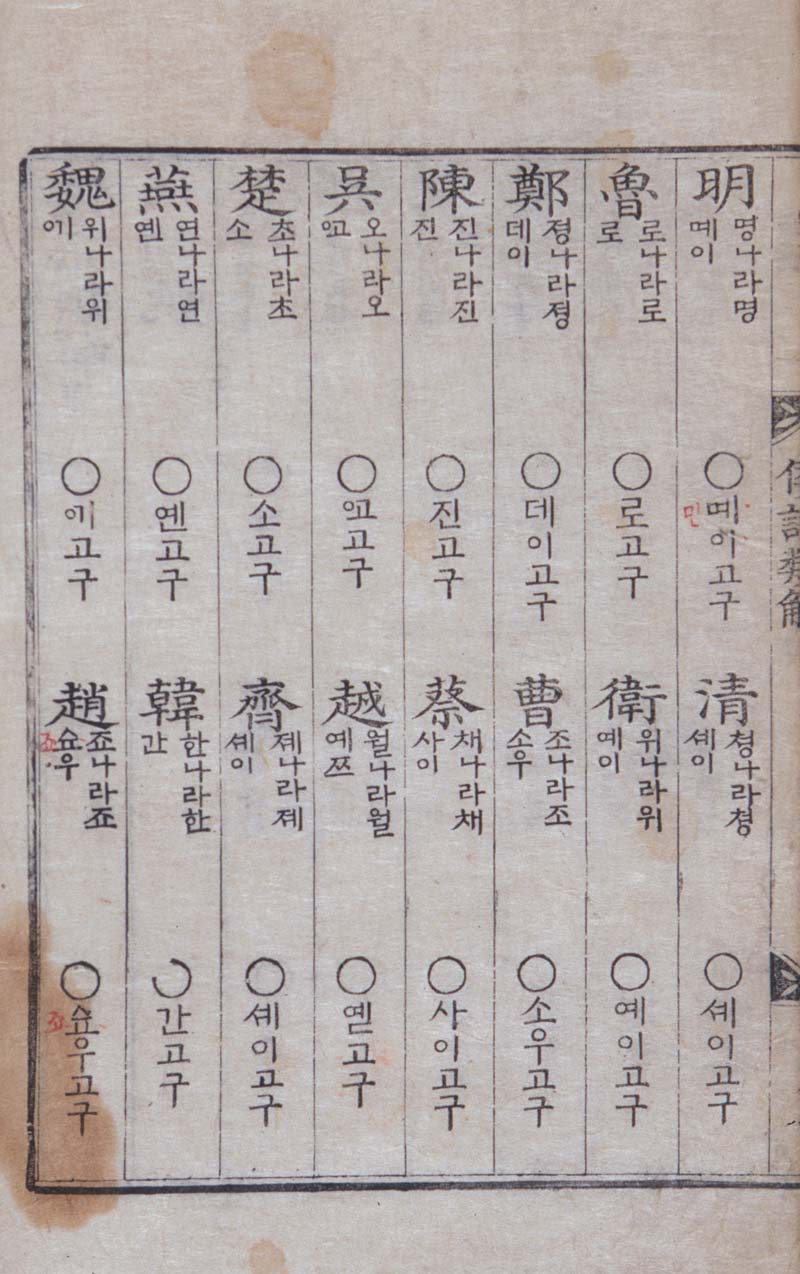 倭語類解
明 명나라명 몌이 ○몌이고구 민
清 쳥나라쳥 셰이 ○셰이고구
魯 로나라로 로 ○로고구
衛 위나라위 예이 ○예이고구
鄭 졍나라졍 데이 ○데이고구
曹 조나라조 소우 ○소우고구
陳 진나라진 진 ○진고구
蔡 채나라채 사이 ○사이고구
吳 오나라오 ᅁᅩ ○ᅁᅩ고구
越 월나라월 예쯔 ○옏고구
楚 초나라초 소 ○소고구
齊 졔나라졔 셰이 ○셰이고구
燕 연나라연 옌 ○옌고구
韓 한나라한 간 ○간고구
魏 위나라위 ᅁᅵ ○ᅁᅵ고구
趙 죠나라죠 쇼우 죠 ○쇼우고구 죠